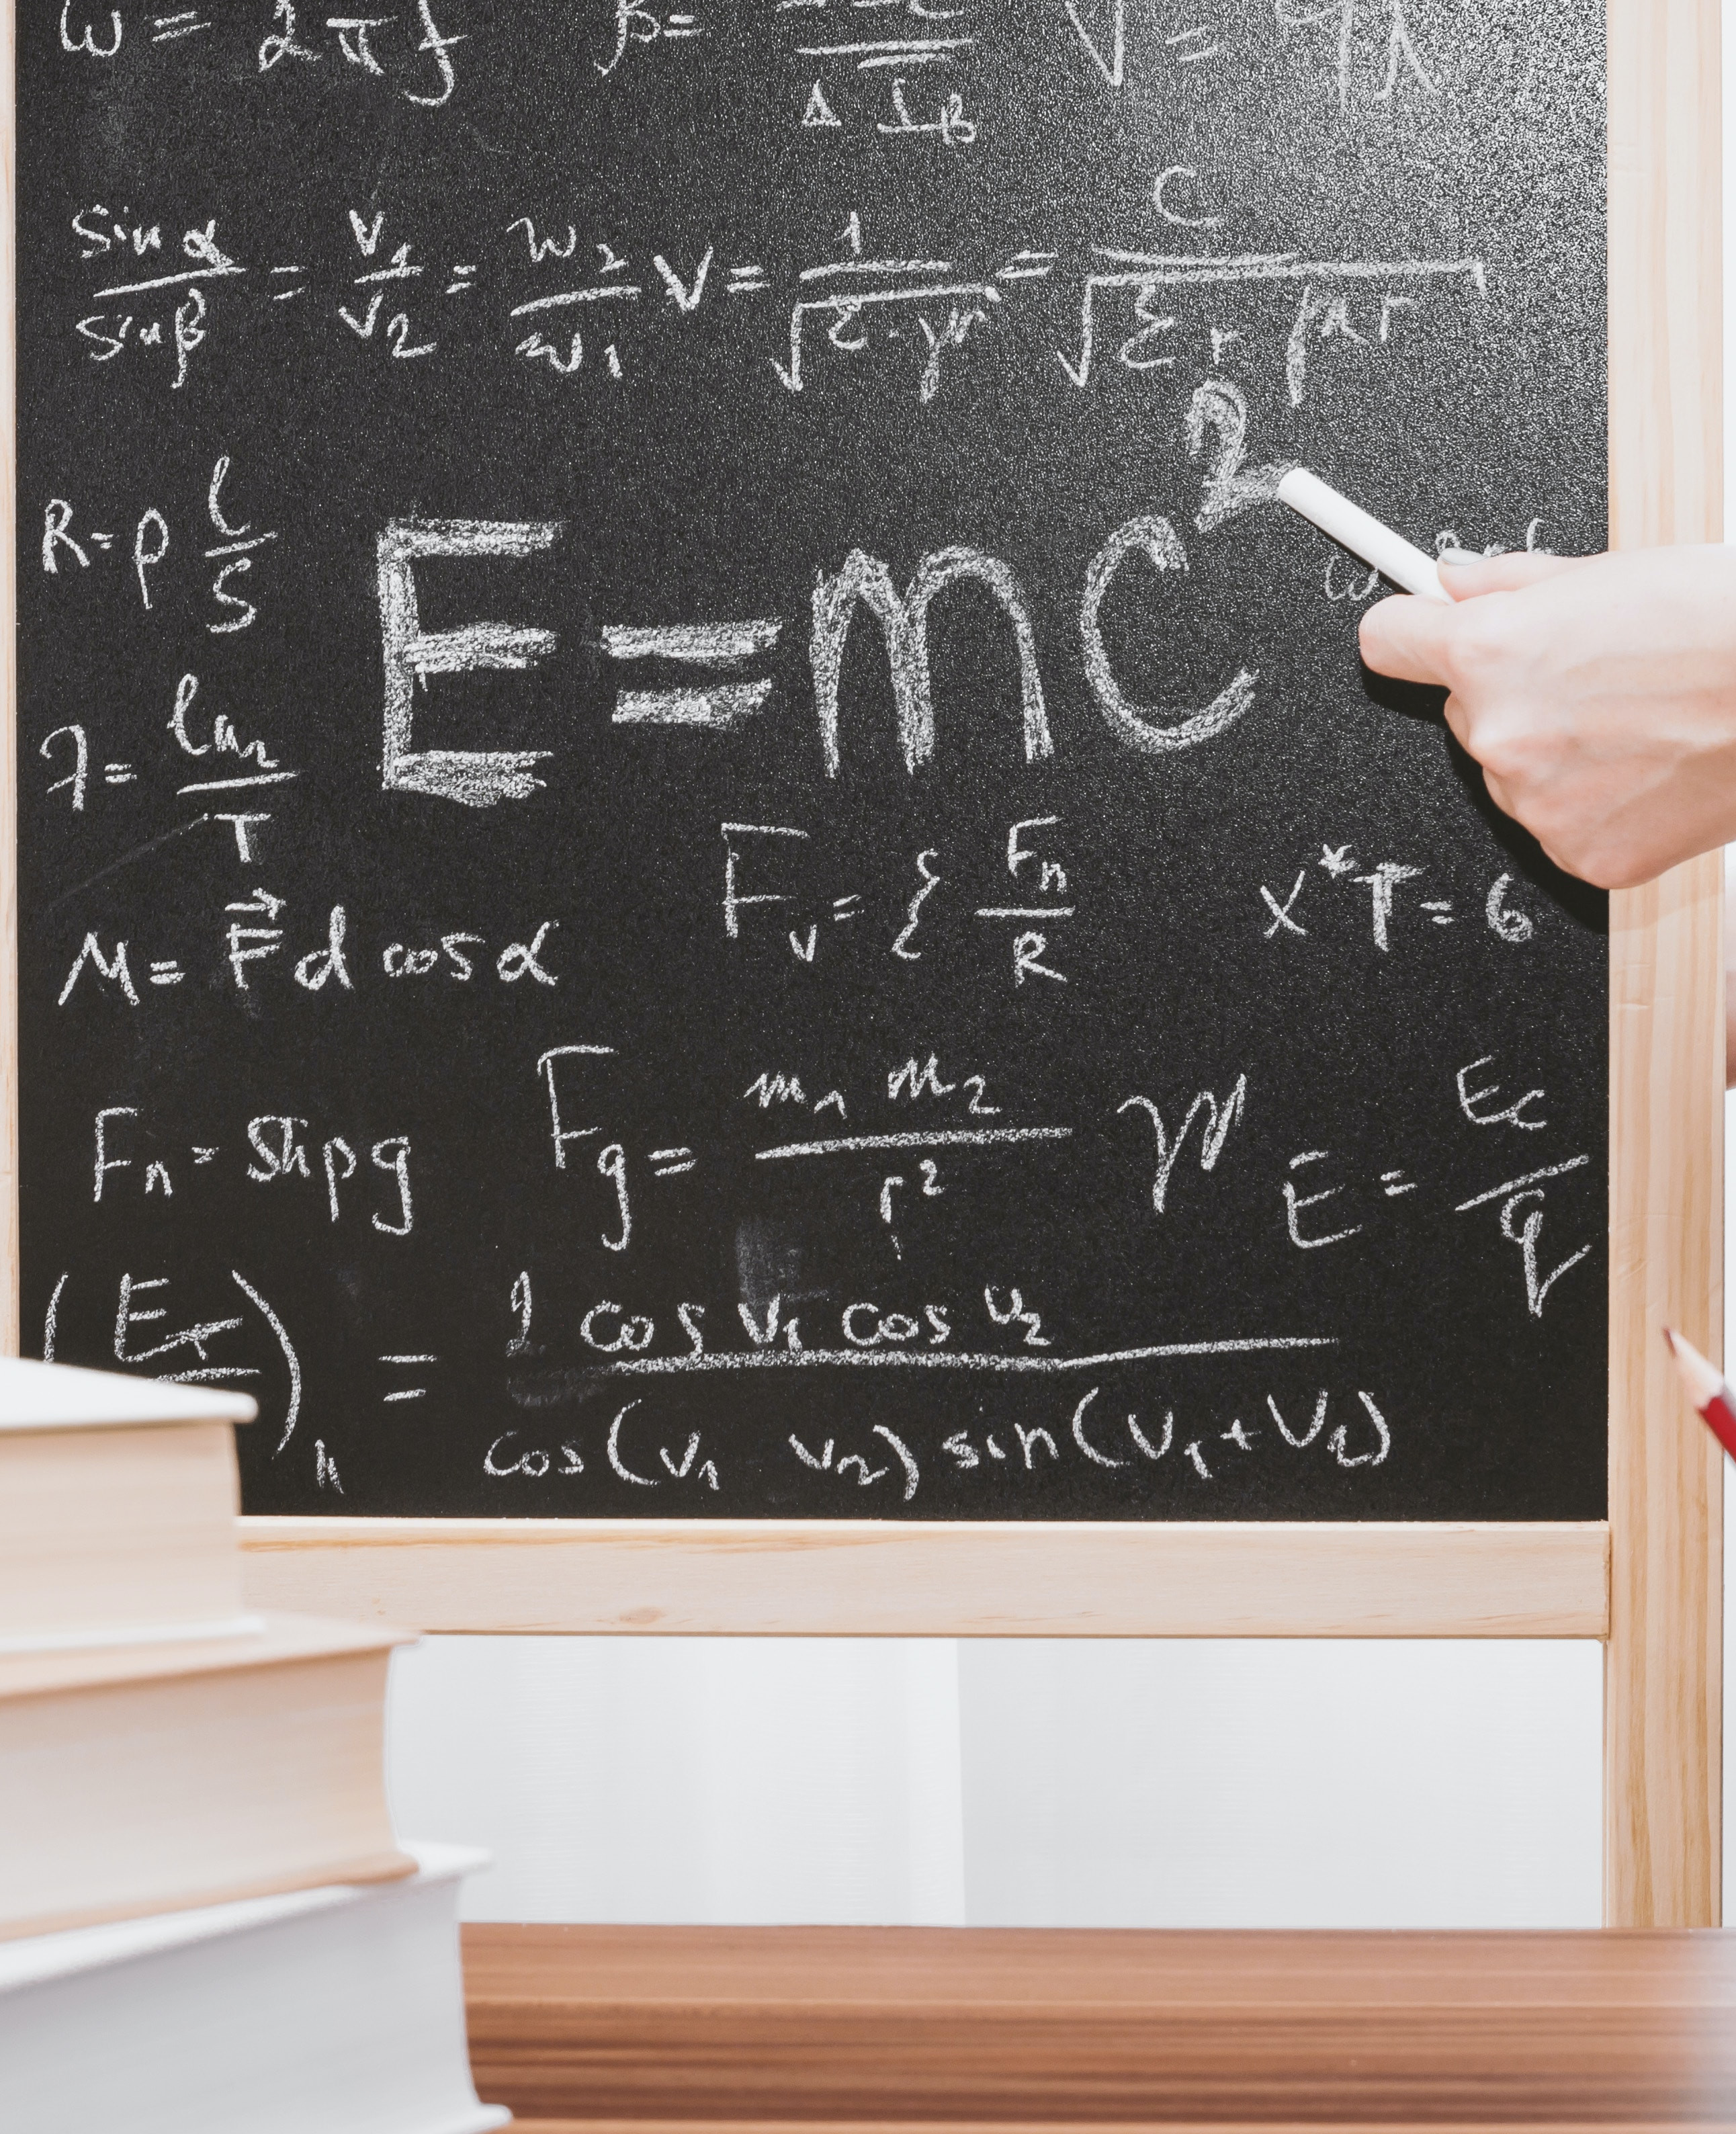 ω = 2πf β= Δ I_B V =
sin α / sin β = v₁ / v₂ = w₂ / w₁ V = 1 / √(ε·μ) = C / √(εr μr)
R = ρ l / S
E = mc²
λ = / T
M = F⃗ d cos α
F_v = { F_n / R
x*T = 6
F_n = Shρg
F_g = m₁ m₂ / r²
E = E_C / q
(E_T / )₁₁ = 2 cos v₁ cos v₂ / cos(v₁ v₂) sin(v₁+v₂)